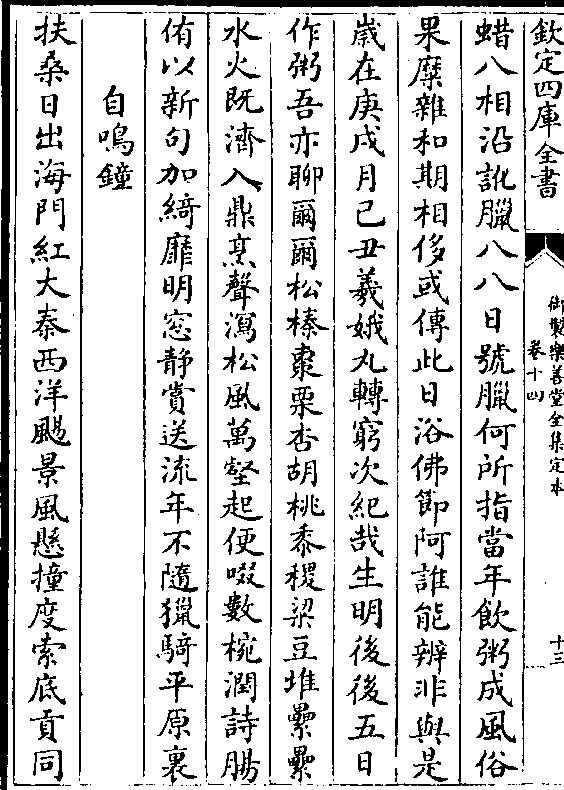 欽定四庫全書
御製樂善堂全集定本
卷十四
十三
蜡八相沿訛臘八八日號臘何所指當年飲粥成風俗
果糜雜和期相侈或傳此日浴佛節阿誰能辨非與是
歲在庚戌月己丑羲娥丸轉窮次紀哉生明後後五日
作粥吾亦聊爾爾松榛棗栗杏胡桃黍稷粱豆堆纍纍
水火既濟入鼎烹聲瀉松風萬壑起便啜數椀潤詩腸
侑以新句加綺靡明窓静賞送流年不隨獵騎平原裏
自鳴鐘
扶桑日出海門紅大秦西洋颺景風懸撞度索底貢同